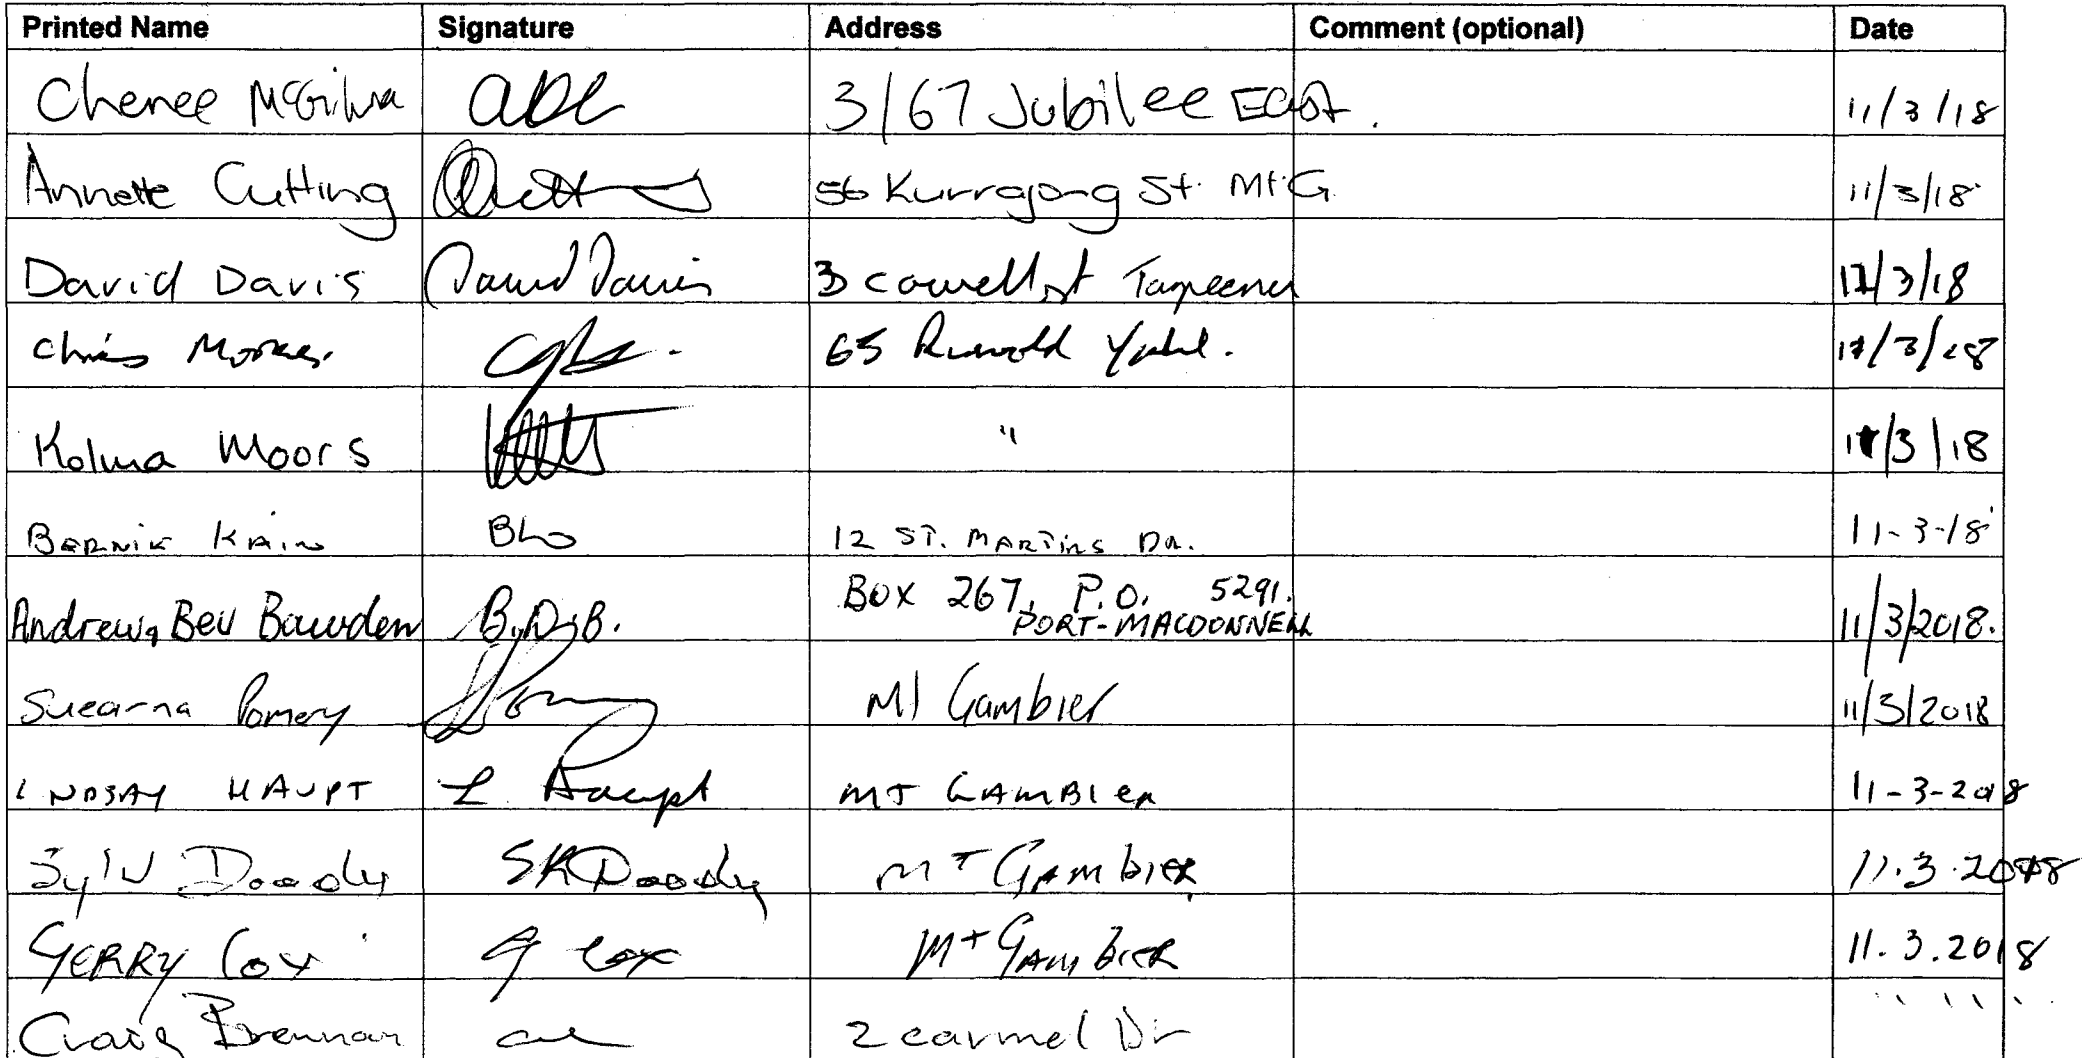 Printed Name Signature Address Comment (optional) Date
Chenee 3/67 Jubilee East. 11/3/18
Annette Cutting 56 Kurrajong St. Mt.G. 11/3/18
David Davis David Davis 3 st 11/3/18
Chris 65 11/3/18
Moors " 11/3/18
BERNIE KAIN 12 ST. MARTINS DR. 11-3-18
Andrew, Bev Bawden B.D.B. BOX 267, P.O. 5291.
PORT-MACDONNELL 11/3/2018.
Suearna Pomery Mt Gambier 11/3/2018
LINDSAY HAUPT L Haupt MT GAMBIER 11-3-2018
Doody SK Doody MT GAMBIER 11.3.2018
GERRY Cox G Cox Mt GAMBIER 11.3.2018
Craig Brennan 2 carmel Dr